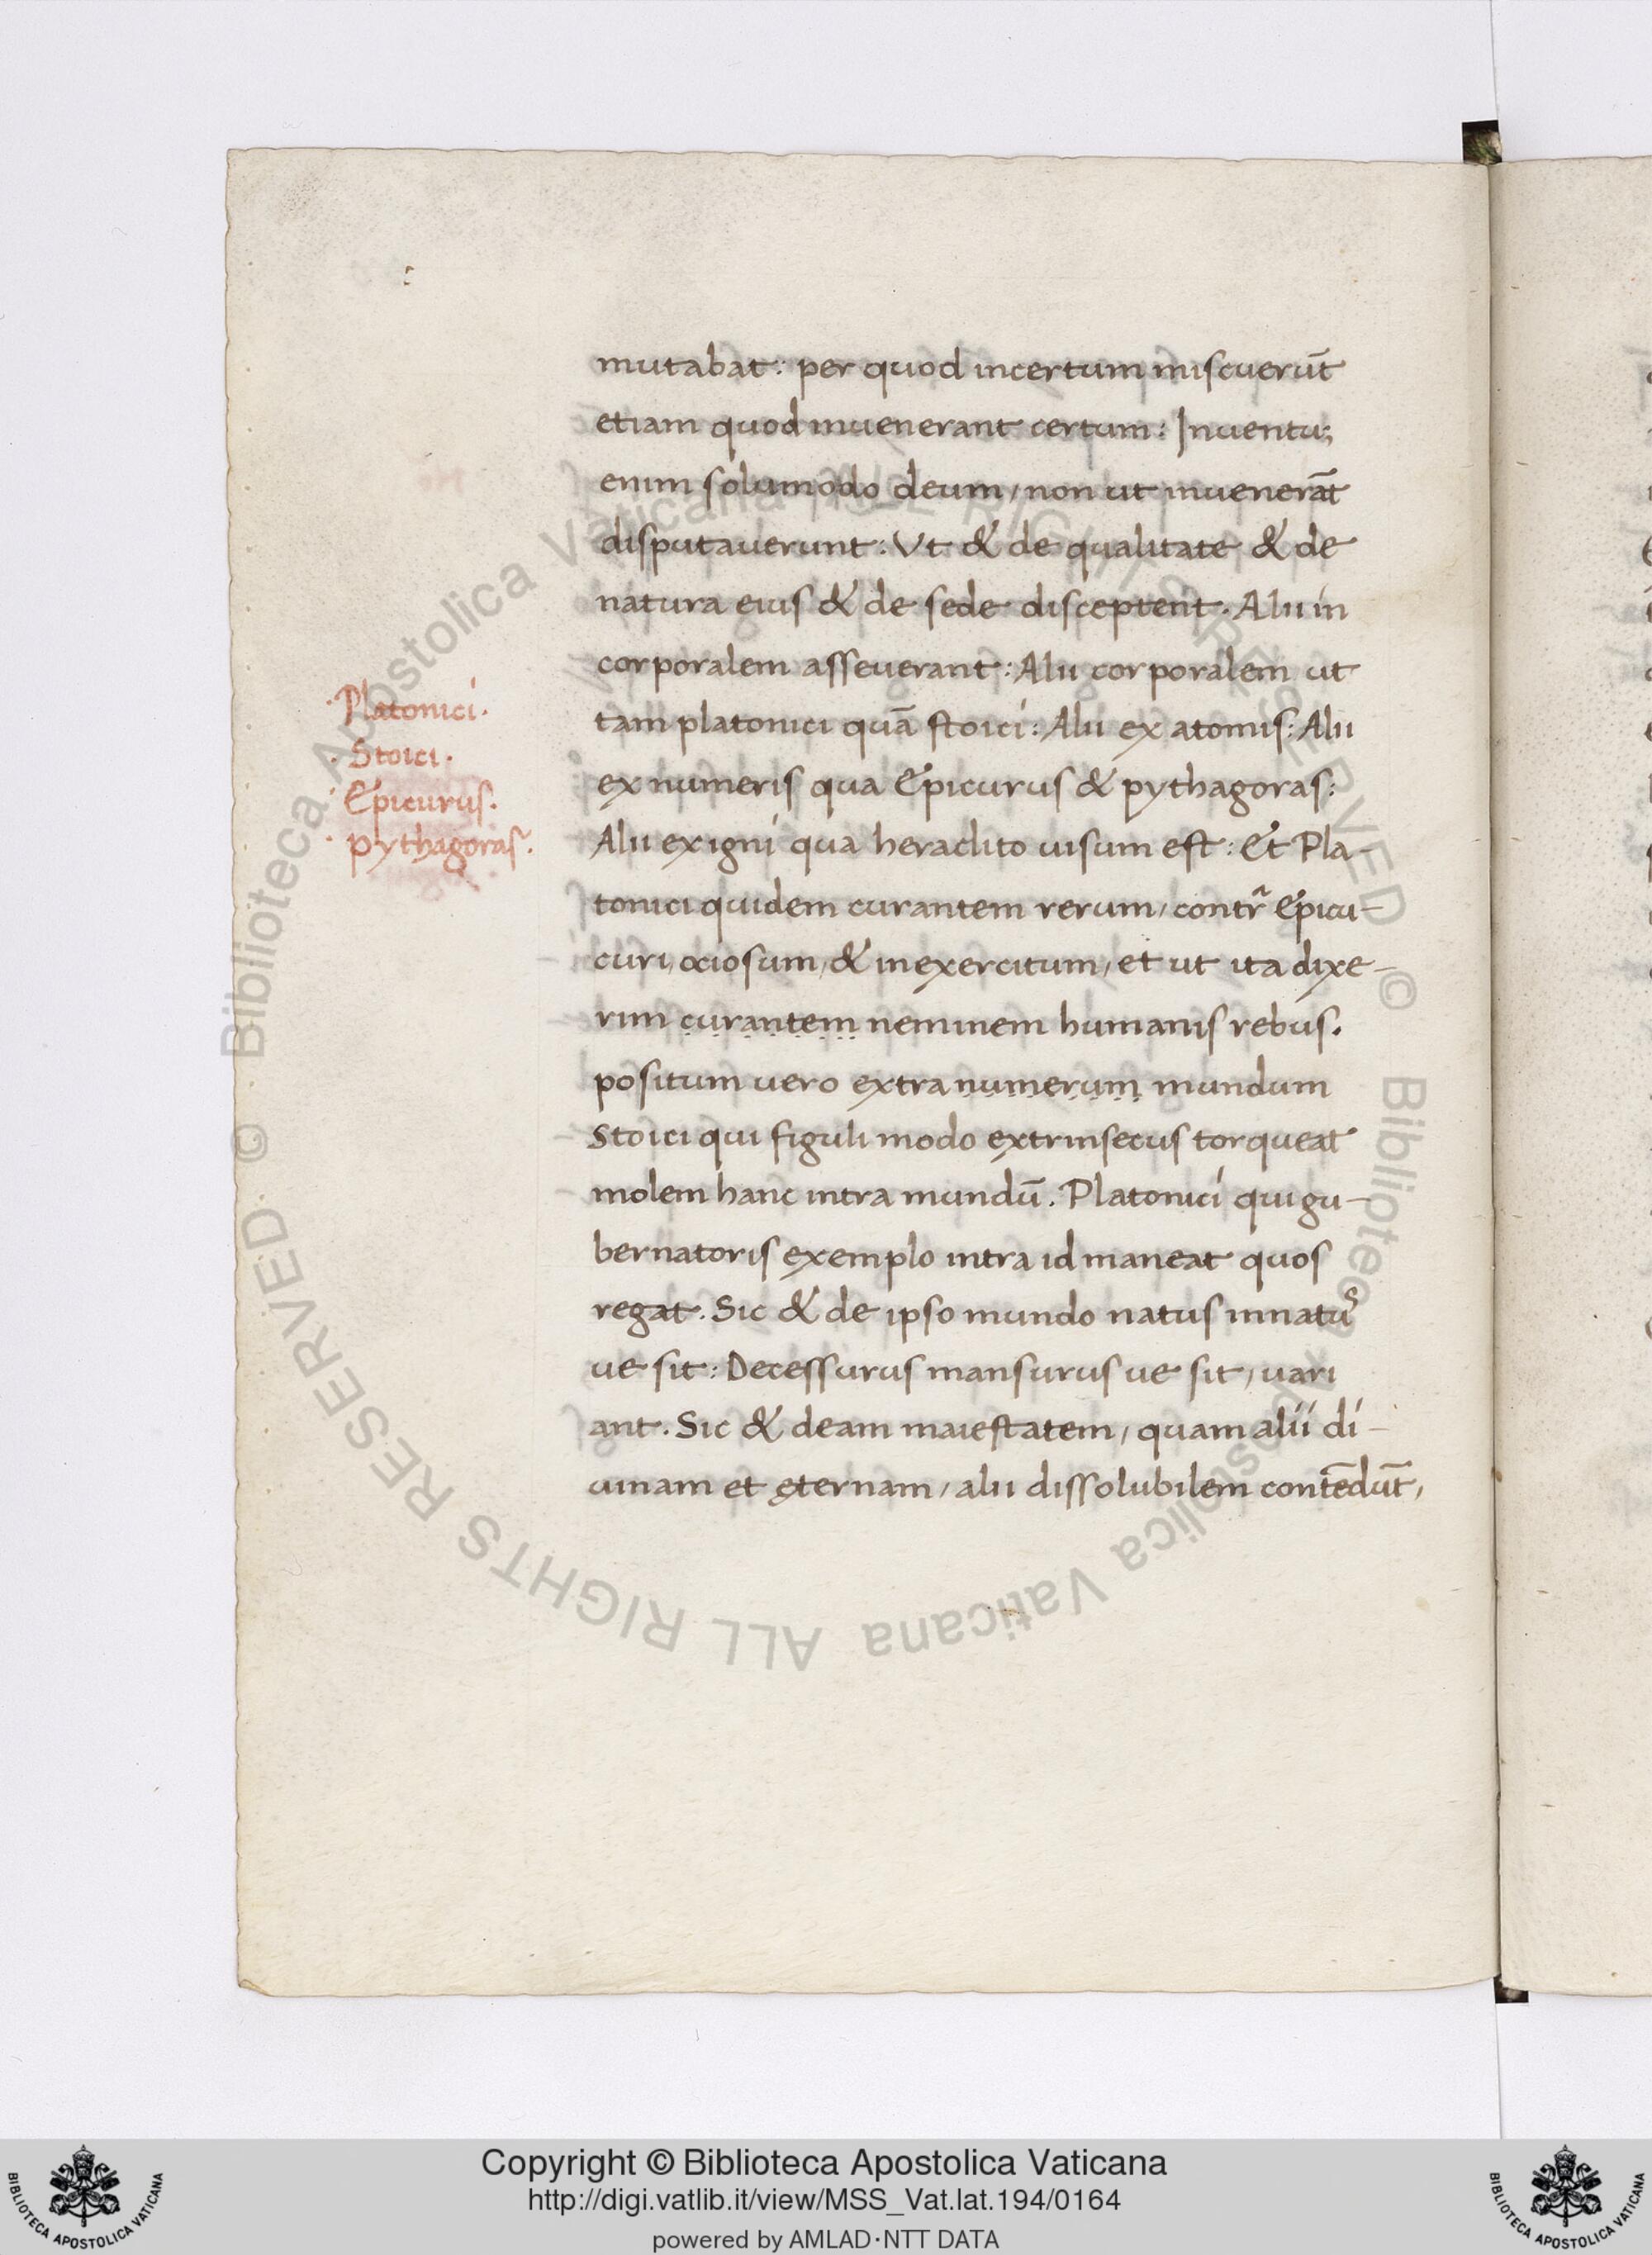 mutabat: per quod incertum miscuerūt
etiam quod inuenerant certum: Inventu;
enim solumodo deum, non ut inuenerāt
disputauerunt: Vt & de qualitate & de
natura eius & de sede disceptent. Alii in
corporalem asseuerant: Alii corporalem ut
tam platonici quā stoici: Alii ex atomis: Alii
ex numeris qua Epicurus & pythagoras:
Alii ex igni qua heraclito uisum est: Et Pla-
tonici quidem curantem rerum, contr̃ Epicu-
curi, ociosum, & inexercitum, et ut ita dixe-
rim curantem neminem humanis rebus.
positum uero extra numerum mundum
Stoici qui figuli modo extrinsecus torqueat
molem hanc intra mundū. Platonici qui gu-
bernatoris exemplo intra id maneat quos
regat. Sic & de ipso mundo natus innatus
ue sit: Decessurus mansurus ue sit, uari
ant. Sic & deam maiestatem, quam alii di-
uinam et ęternam, alii dissolubilem contēdūt,
·Platonici·
·Stoici·
·Epicurus·
·pythagoras·
© Biblioteca Apostolica Vaticana ALL RIGHTS RESERVED
© Biblioteca Apostolica Vaticana ALL RIGHTS RESERVED
Copyright © Biblioteca Apostolica Vaticana
http://digi.vatlib.it/view/MSS_Vat.lat.194/0164
powered by AMLAD·NTT DATA
BIBLIOTECA APOSTOLICA VATICANA
BIBLIOTECA APOSTOLICA VATICANA